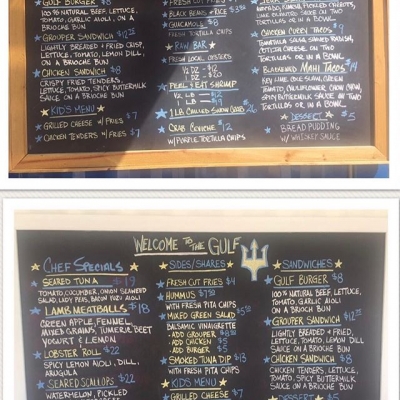 GULF BURGER $8
100% NATURAL BEEF, LETTUCE,
TOMATO, GARLIC AIOLI, ON A
BRIOCHE BUN
GROUPER SANDWICH $12.25
LIGHTLY BREADED + FRIED CRISP,
LETTUCE, TOMATO, LEMON DILL,
ON A BRIOCHE BUN
CHICKEN SANDWICH $8
CRISPY FRIED TENDERS,
LETTUCE, TOMATO, SPICY BUTTERMILK
SAUCE ON A BRIOCHE BUN
KID'S MENU
GRILLED CHEESE W/ FRIES $7
CHICKEN TENDERS W/ FRIES $7
FRESH CUT FRIES
BLACK BEANS + RICE
GUACAMOLE $8
FRESH TORTILLA CHIPS
RAW BAR
FRESH LOCAL OYSTERS
1/2 DZ
DZ $20
PEEL + EAT SHRIMP
1/2 LB $12
1 LB $19
1 LB CHILLED SNOW CRAB
CRAB CEVICHE $12
W/ PURPLE TORTILLA CHIPS
TORTILLAS OR IN A BOWL
CHICKEN CURRY TACOS
CHEESE ON TWO
TORTILLAS OR IN A BOWL
BLACKENED MAHI TACOS $14
KEY LIME COLESLAW, GREEN
TOMATO, CAULIFLOWER, CHOW CHOW,
SPICY BUTTERMILK SAUCE ON TWO
TORTILLAS OR IN A BOWL
DESSERT $5
BREAD PUDDING
W/ WHISKEY SAUCE
WELCOME TO THE GULF
CHEF SPECIALS
SEARED TUNA $19
TOMATO, CUCUMBER, ONION, SEAWEED
SALAD, LADY PEAS, BACON YUZU AIOLI
LAMB MEATBALLS $18
GREEN APPLE, FENNEL,
MIXED GRAINS, TUMERIC BEET
YOGURT & LEMON
LOBSTER ROLL $22
SPICY LEMON AIOLI, DILL,
ARUGULA
SEARED SCALLOPS $22
WATERMELON, PICKLED
SIDES/SHARES
FRESH CUT FRIES $4
HUMMUS $7.50
WITH FRESH PITA CHIPS
MIXED GREEN SALAD
BALSAMIC VINAIGRETTE
- ADD GROUPER
- ADD CHICKEN $5
- ADD BURGER $5
SMOKED TUNA DIP $13
WITH FRESH PITA CHIPS
KID'S MENU
GRILLED CHEESE $7
SANDWICHES
GULF BURGER $8
100% NATURAL BEEF, LETTUCE,
TOMATO, GARLIC AIOLI
ON A BRIOCHE BUN
GROUPER SANDWICH $12.25
LIGHTLY BREADED + FRIED,
LETTUCE, TOMATO, LEMON DILL
SAUCE ON A BRIOCHE BUN
CHICKEN SANDWICH $8
CHICKEN TENDERS, LETTUCE,
TOMATO, SPICY BUTTERMILK
SAUCE ON A BRIOCHE BUN
DESSERT $5